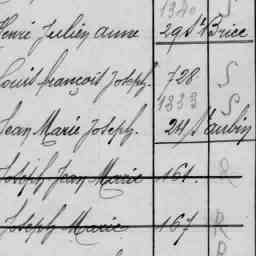 1340 S
Henri Julien Anne 29 St Brice
Louis françois Joseph. 728 S
1333 S
Jean Marie Joseph. 24 St aubin
Joseph Jean Marie 161. R
Joseph Marie 167 R
R